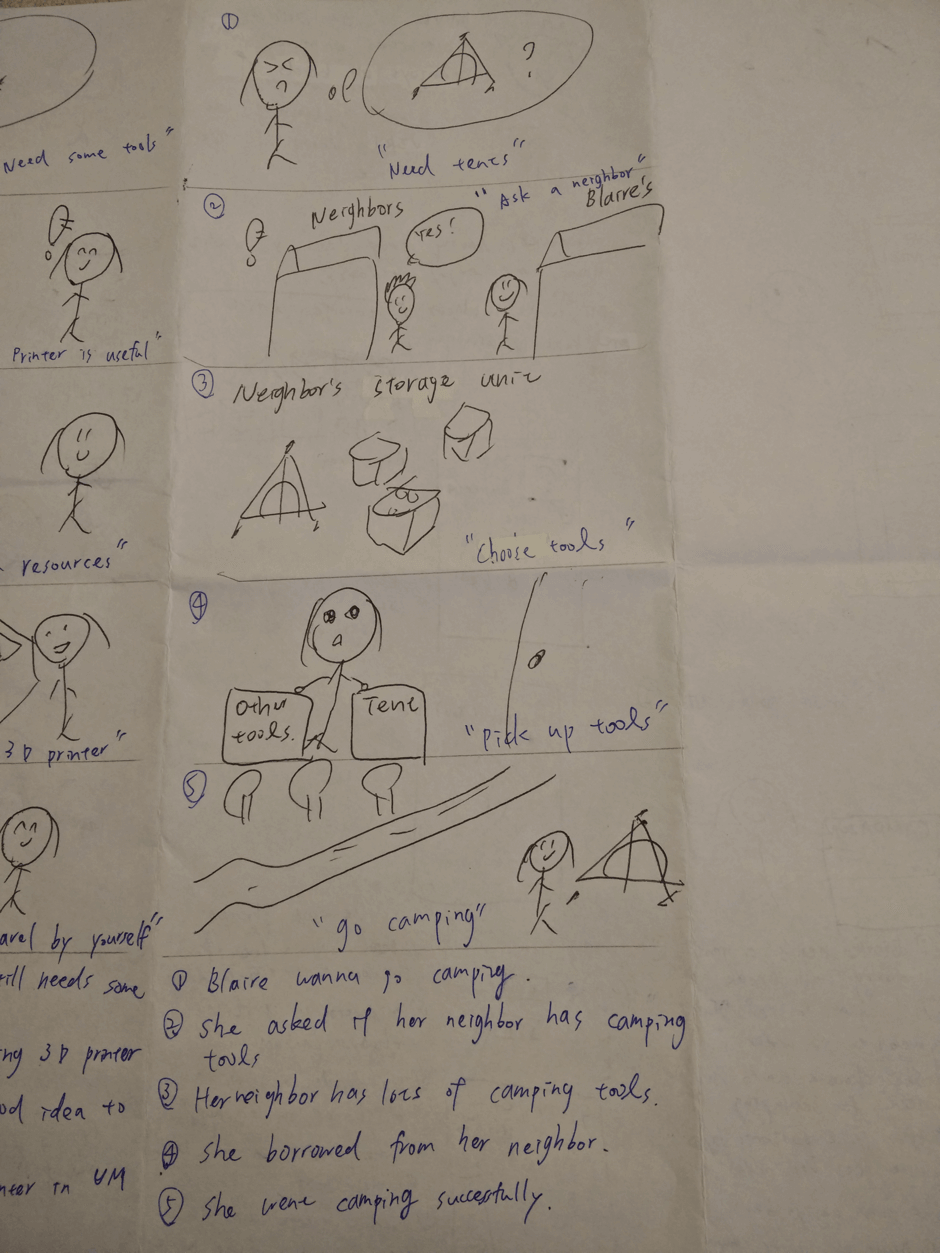 Need some tools"
Printer is useful"
resources"
3D printer"
by yourself"
needs some
3D printer
idea to
in
①
?
"Need tents"
②
Neighbors
"Ask a neighbor"
Blaire's
Yes!
③
Neighbor's storage unit
"Choose tools"
④
Other
tools.
Tent
"pick up tools"
⑤
"go camping"
① Blaire wanna go camping.
② She asked if her neighbor has camping
tools
③ Her neighbor has lots of camping tools.
④ She borrowed from her neighbor.
⑤ She went camping succesfully.